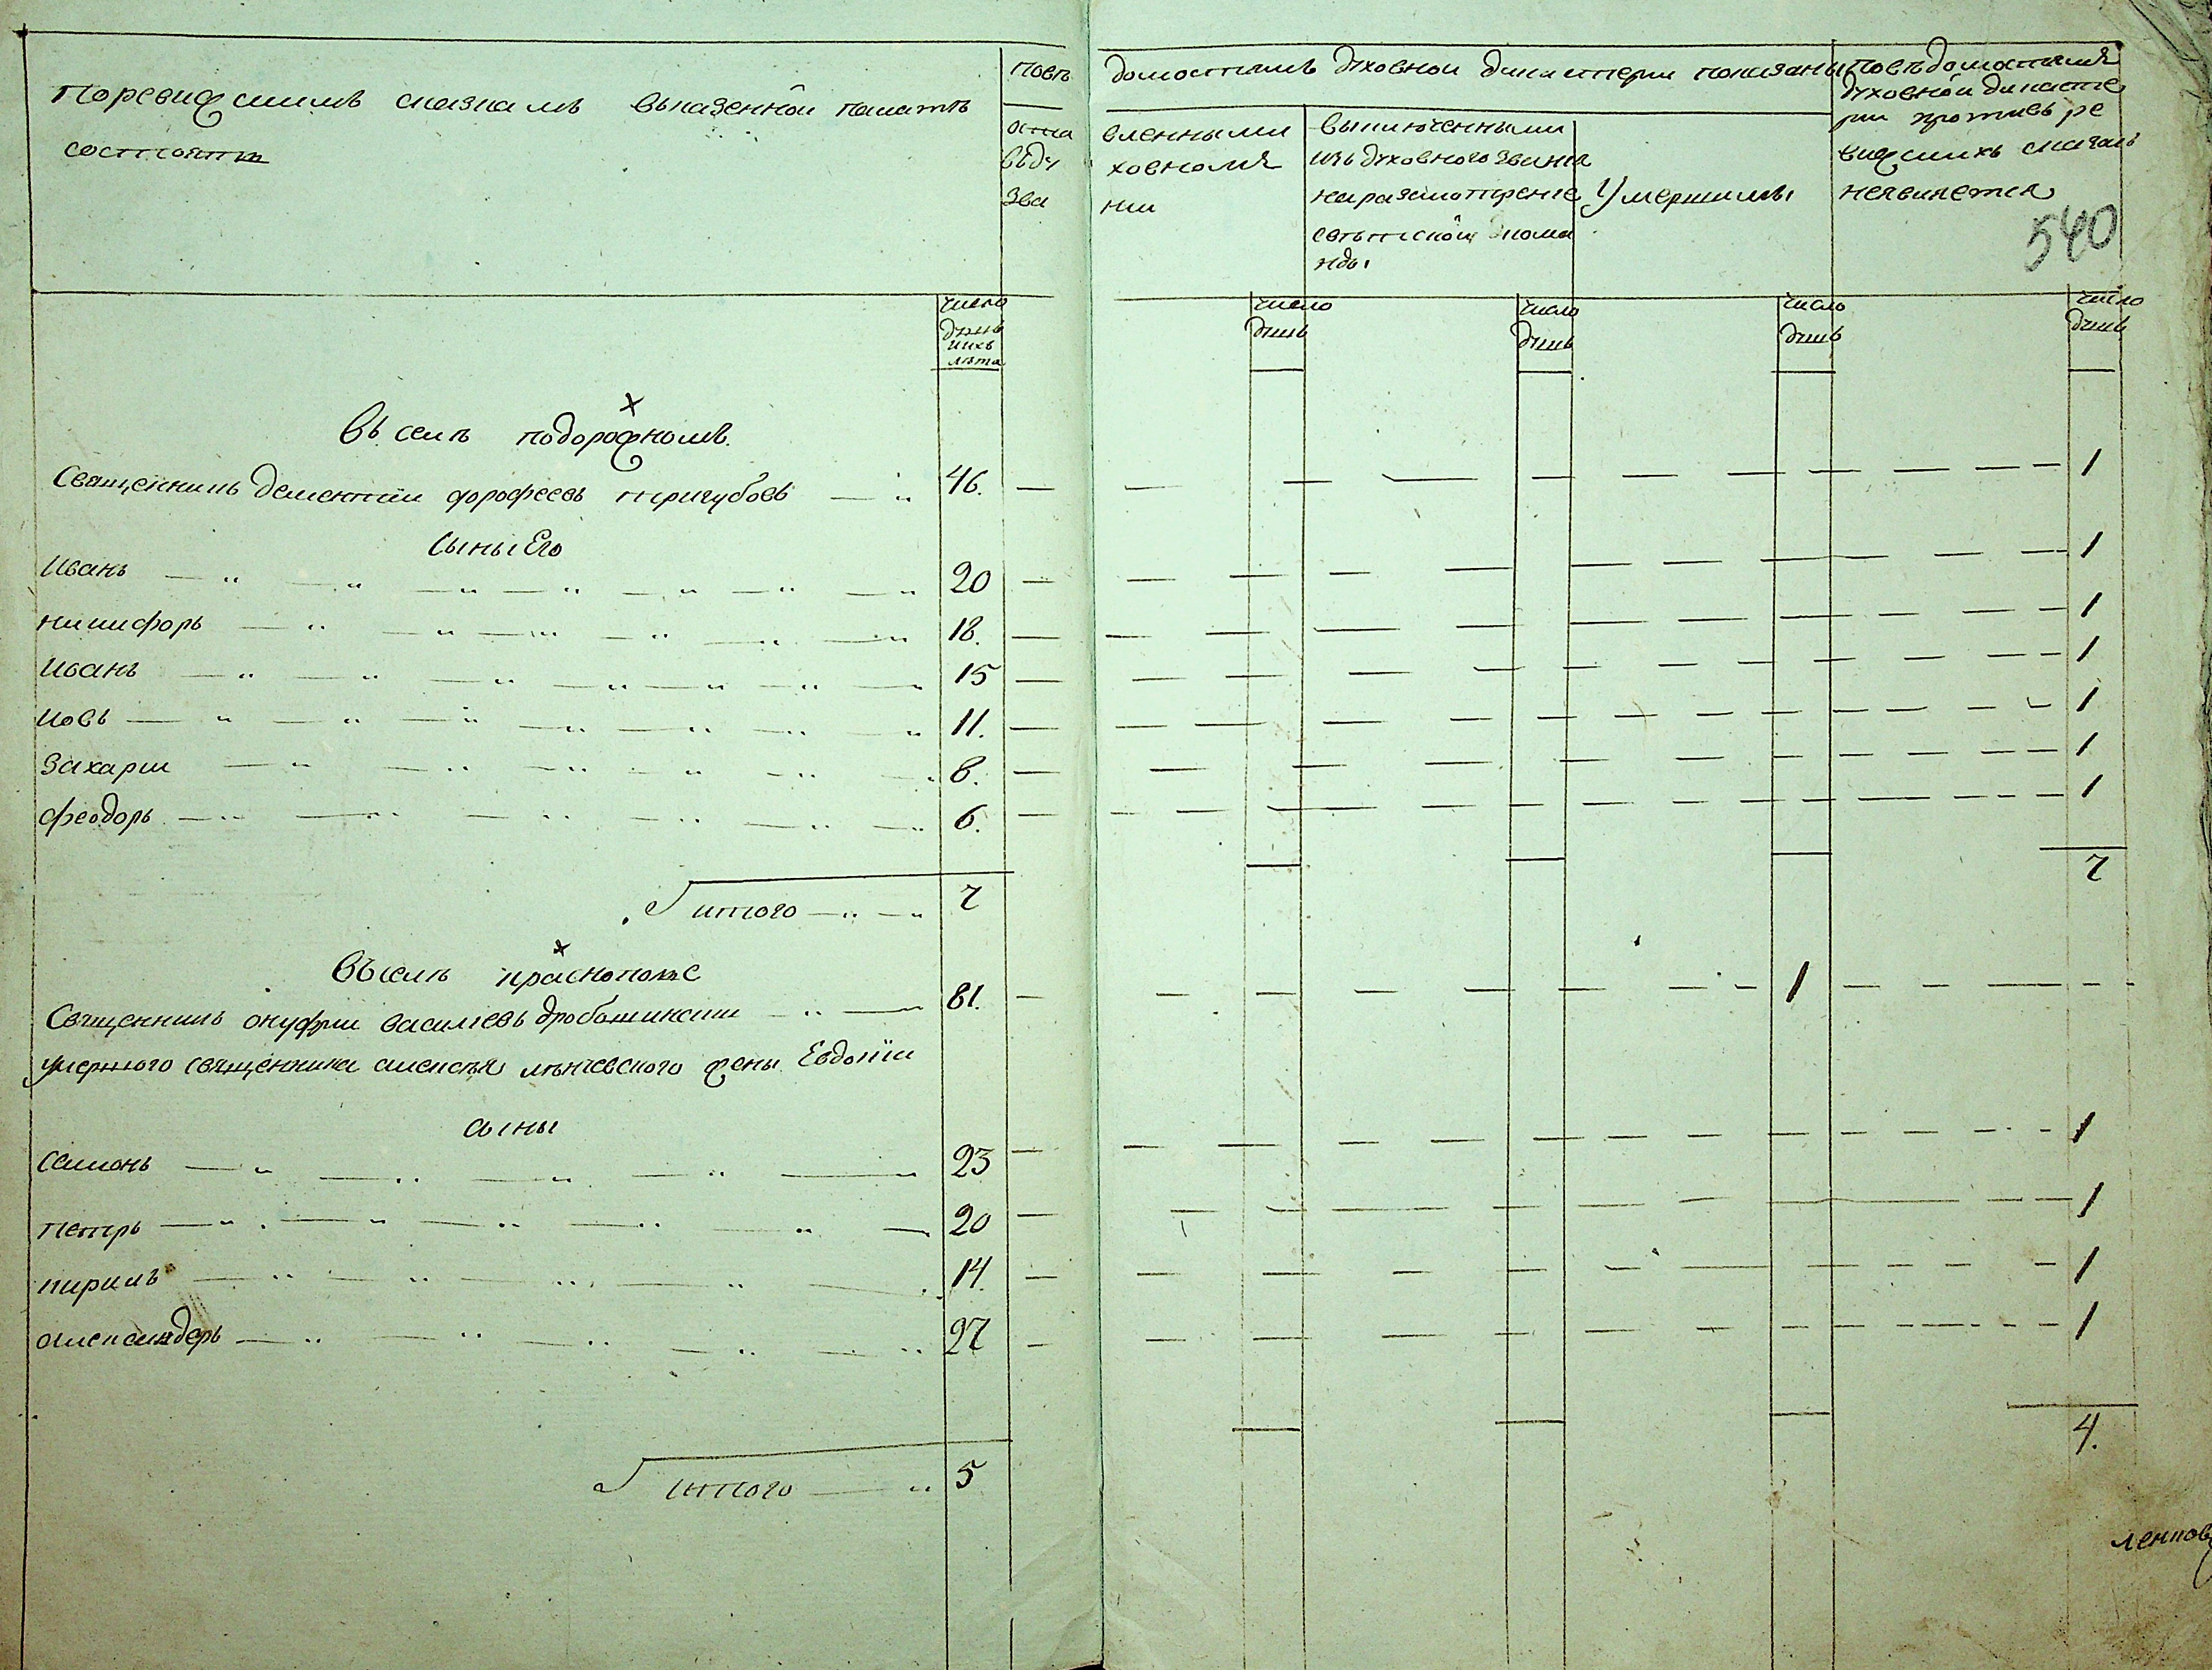 поревижскимъ сказкамъ вказенной палатѣ
состоитъ
повѣ
домостямъ духовной дикастерии показаны
оста
вленными
въду
ховномъ
зва
нии
выключенными
изъ духовного звания
наразсмотрение
свѣтской кома
нды
умершимы
повѣдомостямъ
духовной дикасте
рии противъ ре
вижскихъ сказакъ
неявляется
540
число
душъ
ихъ
лѣта
число
душъ
число
душъ
число
душъ
число
душъ
въ селѣ подорожномъ.
Священникъ дементии дорофеевъ тригубовъ 46. 1
сыны Его
иванъ 20 1
никифоръ 18. 1
иванъ 15 1
иовъ 11. 1
захарии 8. 1
феодоръ 6. 1
итого 7 7
въ селѣ краснополье
Священникъ онуфрии василиевъ 81. 1
умершого священника алексея жены Евдокіи
сыны
семионъ 23 1
петръ 20 1
кирилъ 14. 1
александеръ 27 1
итого 5 4.